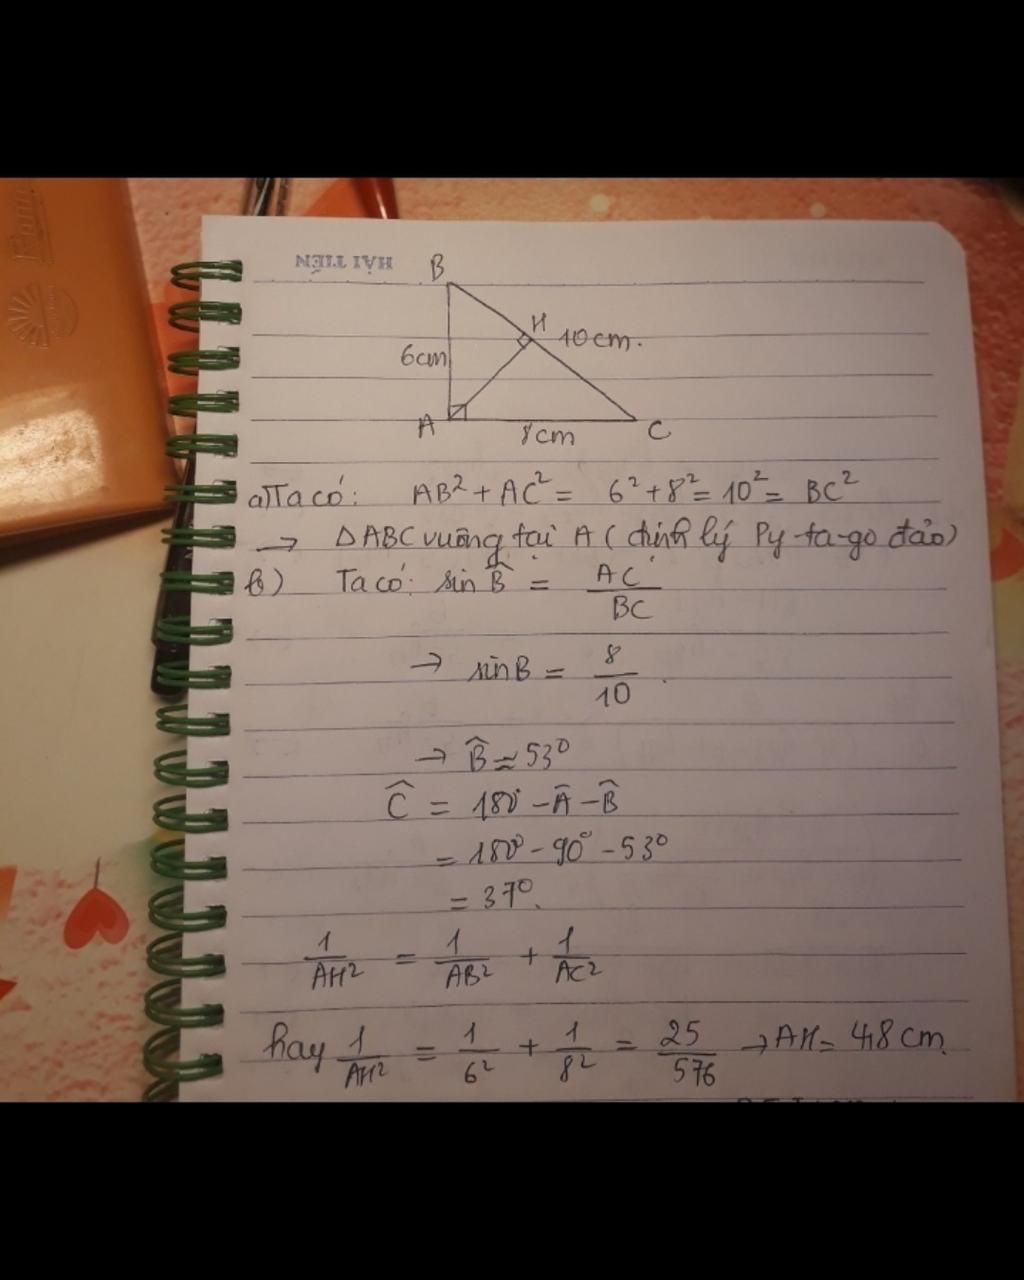 HẢI TIẾN
B
H
10cm.
6cm
A
8cm
C
a) Ta có: AB² + AC² = 6² + 8² = 10² = BC²
→ ΔABC vuông tại A (định lý Py-ta-go đảo)
b) Ta có: sin B̂ = AC / BC
→ sinB = 8 / 10.
→ B̂ ≈ 53°
Ĉ = 180° - Â - B̂
= 180° - 90° - 53°
= 37°.
1/AH² = 1/AB² + 1/AC²
hay 1/AH² = 1/6² + 1/8² = 25/576 → AH = 4,8 cm.